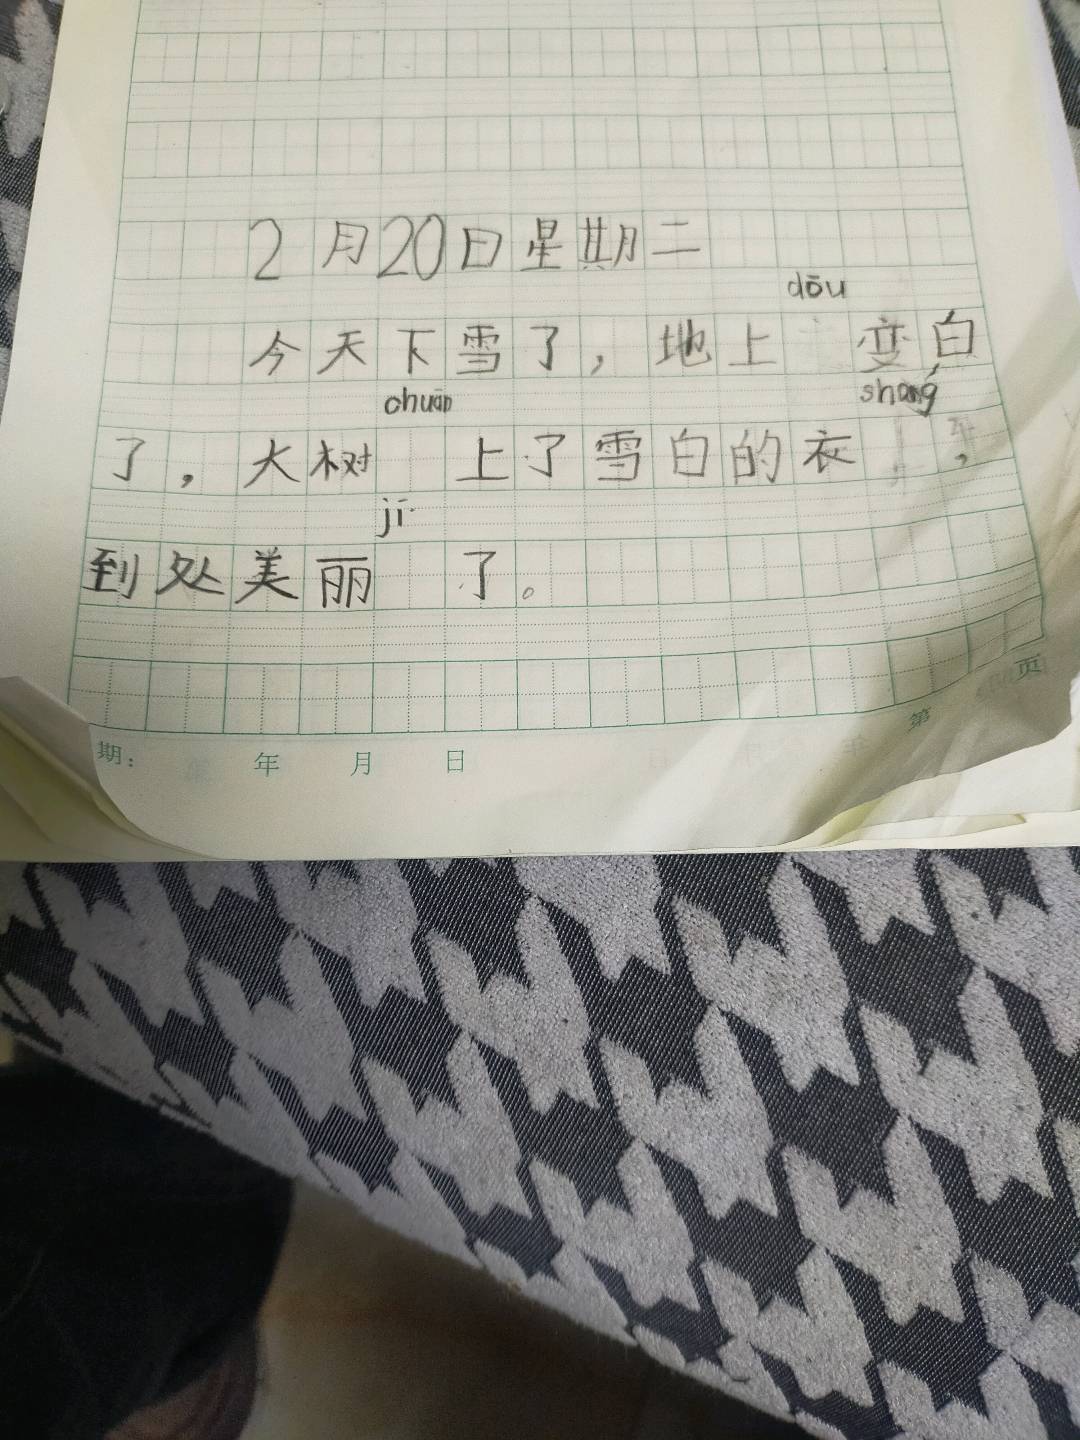 2月20日星期二
dōu
今天下雪了，地上 变白
chuān sháng
了，大树 上了雪白的衣 ，
jí
到处美丽 了。
期： 年 月 日 第 页